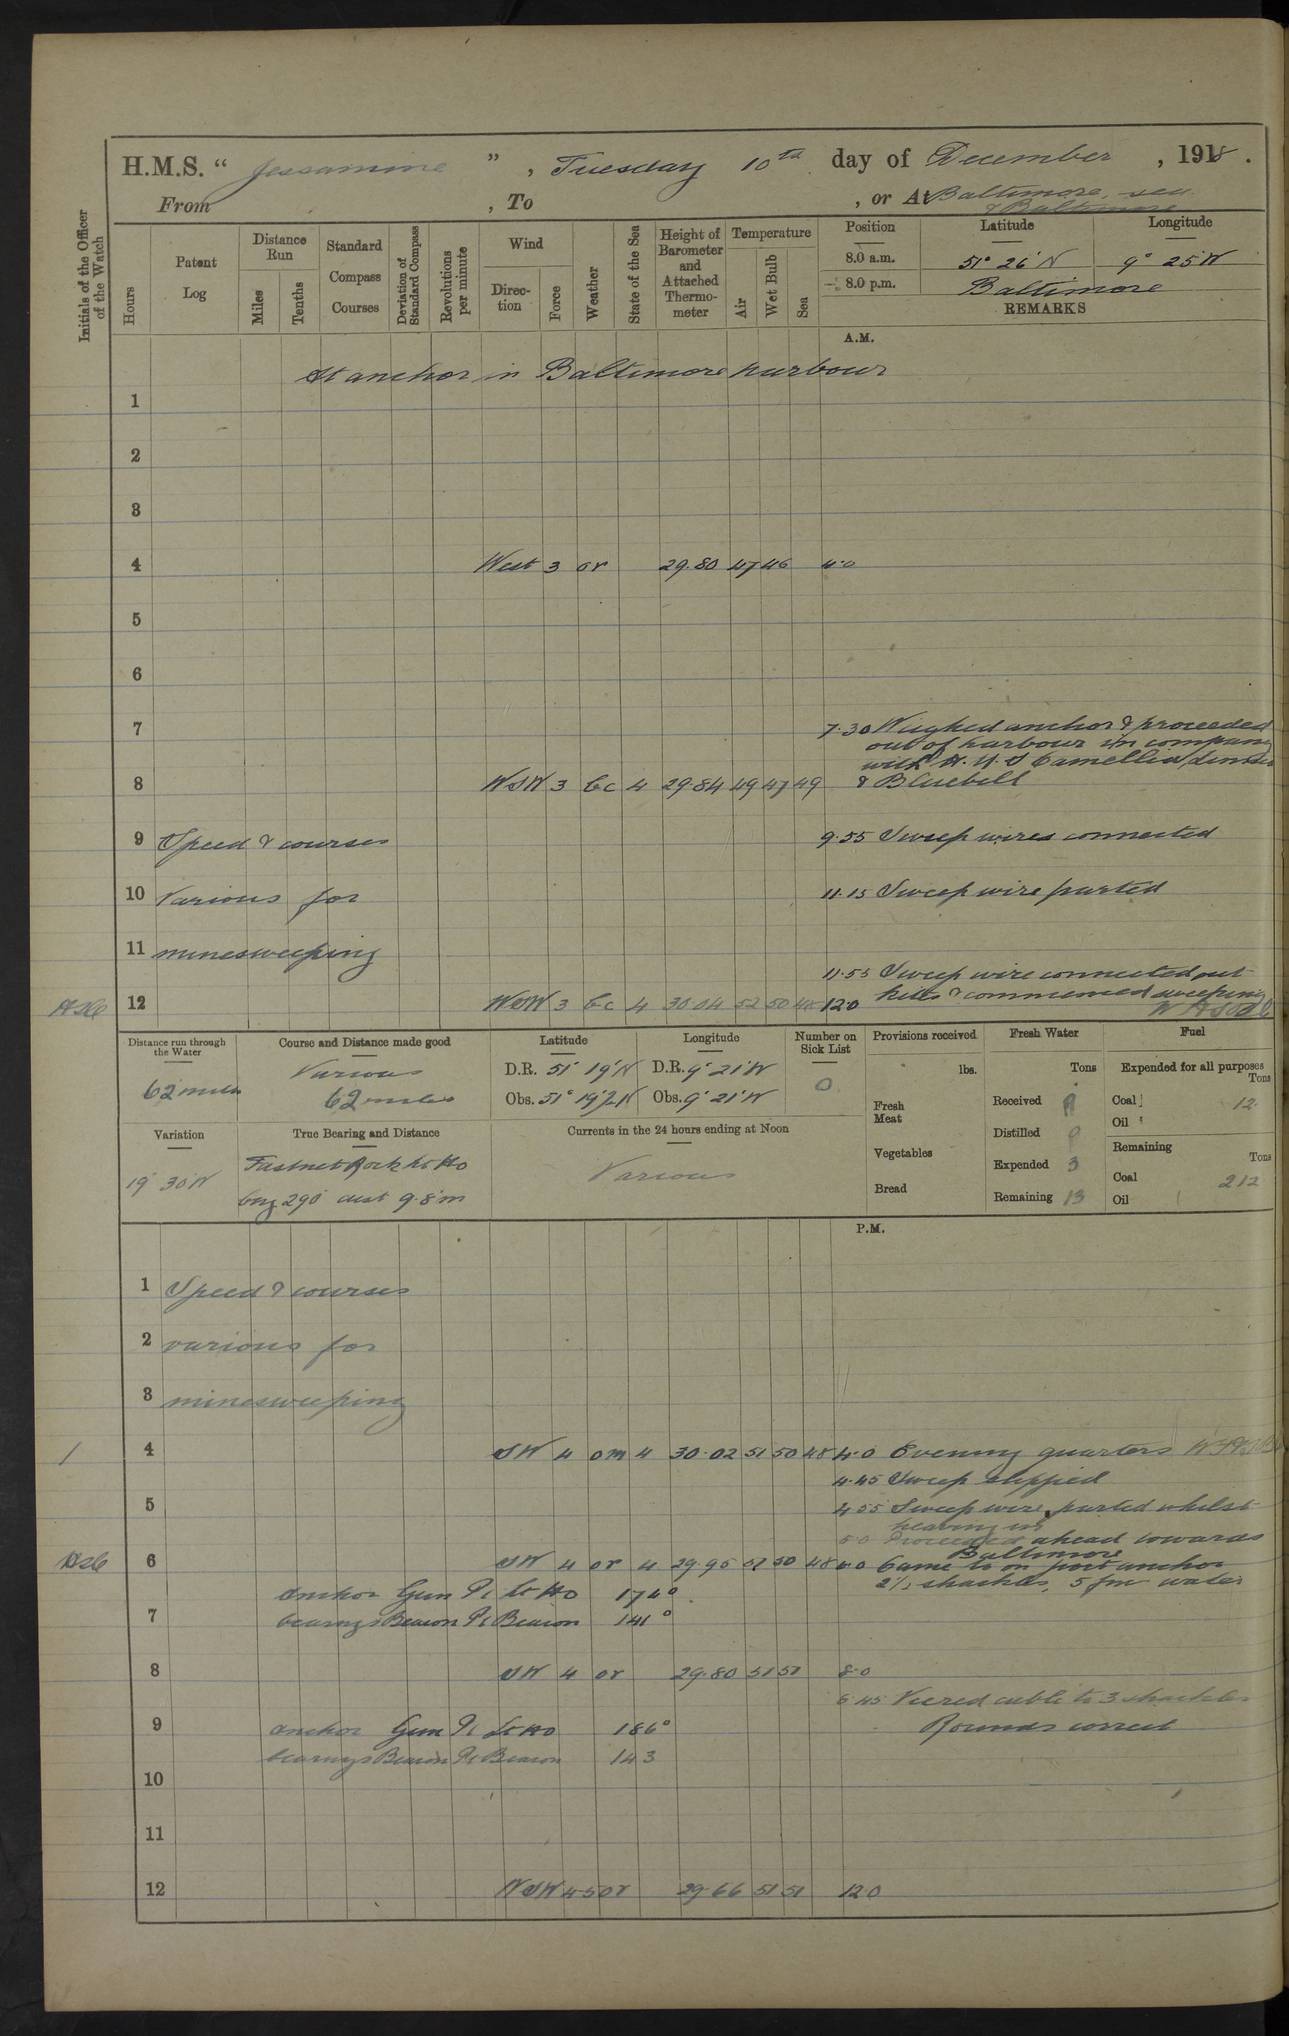 H.M.S. “ Jessamine ” , Tuesday 10th day of December , 1918 .
From , To , or At Baltimore, sea
& Baltimore
Initials of the Officer of the Watch
Hours
Patent Log
Distance Run
Miles
Tenths
Standard Compass Courses
Deviation of Standard Compass
Revolutions per minute
Wind
Direction
Force
Weather
State of the Sea
Height of Barometer and Attached Thermometer
Temperature
Air
Wet Bulb
Sea
Position Latitude Longitude
8.0 a.m. 51° 26' N 9° 25' W
8.0 p.m. Baltimore
REMARKS
A.M.
At anchor in Baltimore harbour
1
2
3
4 West 3 or 29.80 47 46 4.0
5
6
7 7.30 Weighed anchor & proceeded
out of harbour in company
with H.M.S Camellia
8 WSW 3 bc 4 29.84 49 47 49 & Bluebell
9 Speed & courses 9.55 Sweep wires connected
10 Various for 11.15 Sweep wire parted
11 minesweeping
11.55 Sweep wire connected out
12 WSW 3 bc 4 30.04 52 50 48 12.0 kites & commenced sweeping
Distance run through the Water
62 miles
Course and Distance made good
Various
62 miles
Latitude
D.R. 51° 19' N
Obs. 51° 19½' N
Longitude
D.R. 9° 21' W
Obs. 9° 21' W
Number on Sick List
0
Provisions received
lbs.
Fresh Meat
Vegetables
Bread
Fresh Water
Tons
Received
Distilled 0
Expended 3
Remaining 13
Fuel
Expended for all purposes
Tons
Coal 12
Oil
Remaining
Tons
Coal 212
Oil
Variation
19° 30' W
True Bearing and Distance
Fastnet Rock Lt Ho
brg 290° dist 9.8 m
Currents in the 24 hours ending at Noon
Various
P.M.
1 Speed & courses
2 various for
3 minesweeping
4 SW 4 om 4 30.02 51 50 48 4.0 Evening quarters
4.45 Sweep slipped
5 4.55 Sweep wire parted whilst
heaving in
5.0 Proceeded ahead towards
Baltimore
6 SW 4 or 4 29.95 51 50 48 6.0 Came to on port anchor
2½ shackles, 5 fm water
anchor Gun Pt Lt Ho 176°
7 bearings Beacon Pt Beacon 141°
8 SW 4 or 29.80 51 51 8.0
8.45 Veered cable to 3 shackles
9 anchor Gun Pt Lt Ho 186° Rounds correct
bearings Beacon Pt Beacon 143
10
11
12 WSW 4-5 or 29.66 51 51 12.0